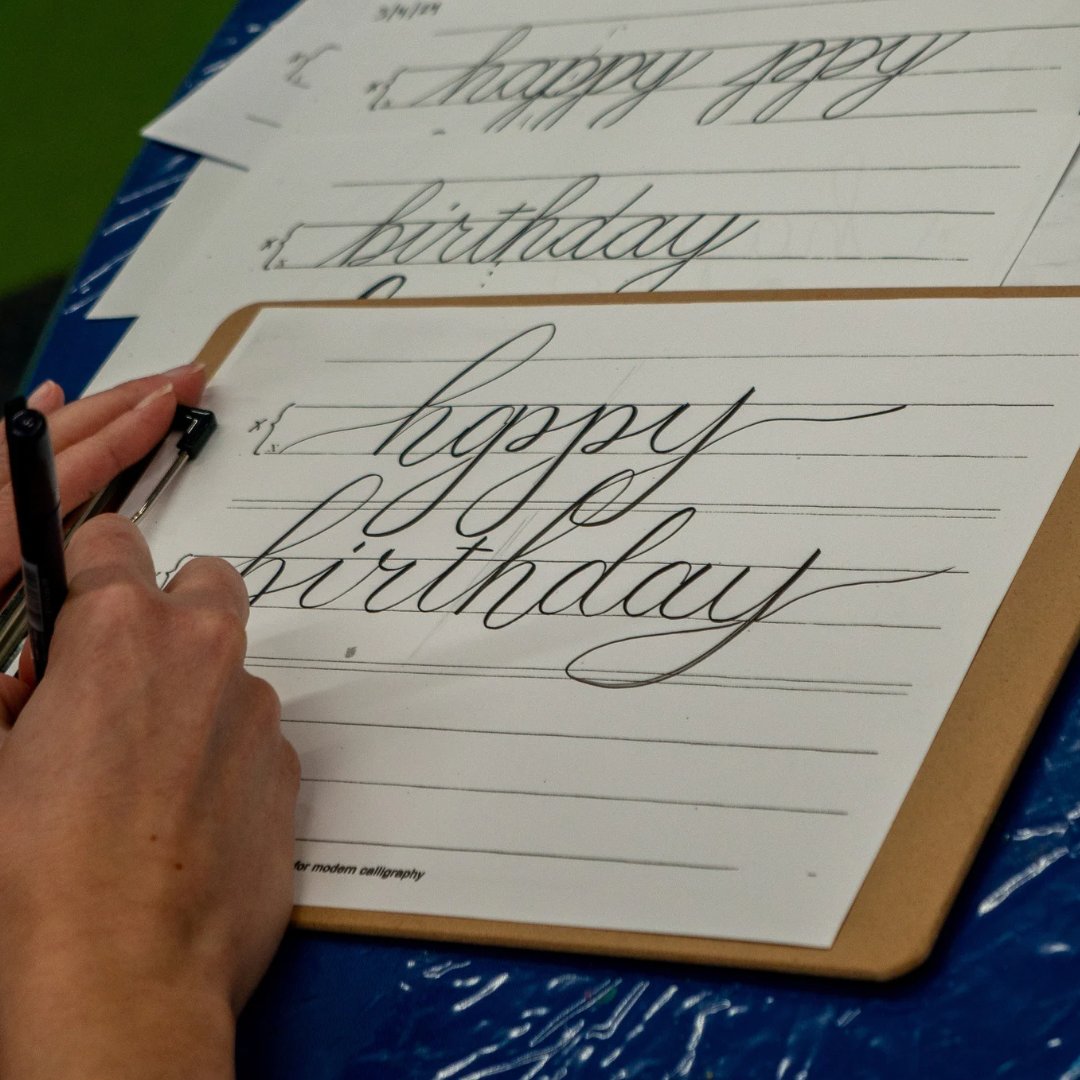 3/4/24
x happy ppy
x birthday
x happy
birthday
for modern calligraphy